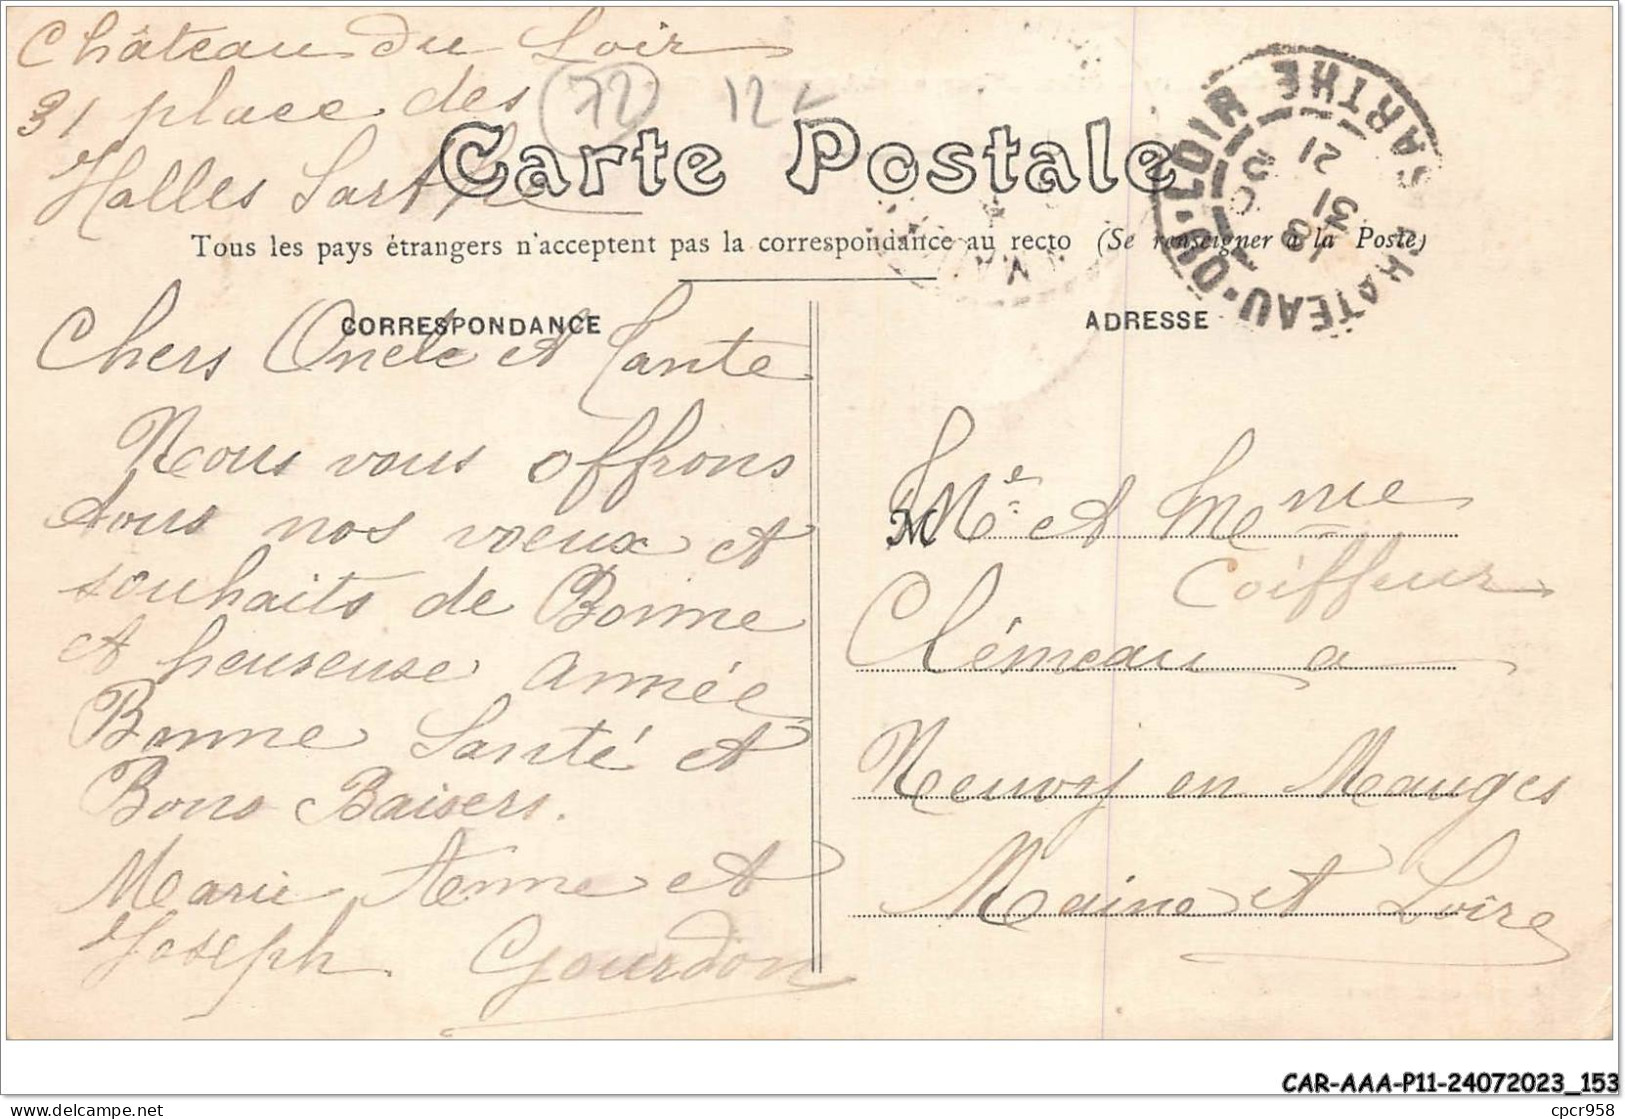 Château du Loir
31 place des
Halles Sarthe
72
12
Carte Postale
Tous les pays étrangers n'acceptent pas la correspondance au recto (Se renseigner à la Poste)
CHATEAU-DU-LOIR SARTHE
18
31
21
CORRESPONDANCE
Chers Oncle et Tante
Nous vous offrons
tous nos voeux et
souhaits de Bonne
et heureuse année
Bonne Santé et
Bons Baisers.
Marie Anne et
Joseph Gourdon
ADRESSE
M
Mr et Mme
Coiffeur
Clémeau a
Neuvy en Mauges
Maine et Loire
CAR-AAA-P11-24072023_153
cpcr958